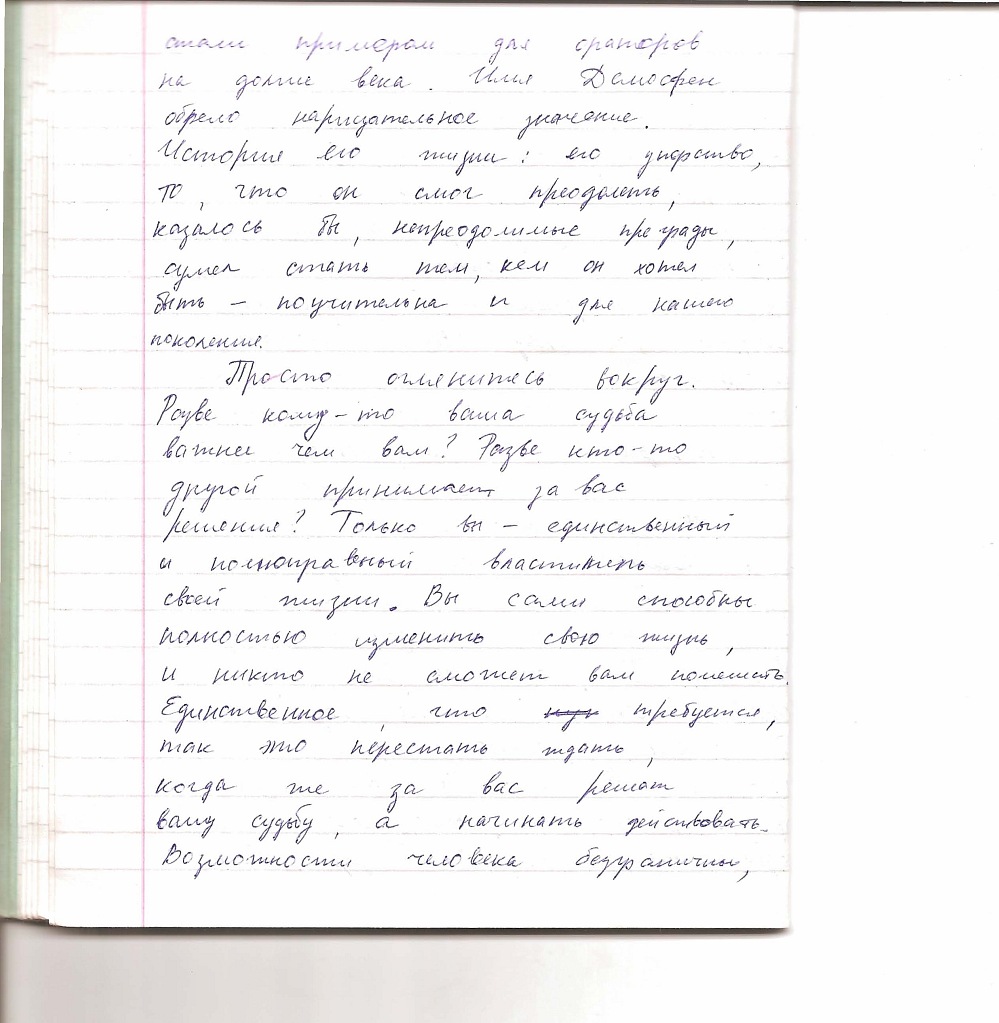 стали примером для ораторов
на долгие века. Имя Демосфен
обрело нарицательное значение.
История его жизни: его упорство,
то, что он смог преодолеть,
казалось бы, непреодолимые преграды,
сумел стать тем, кем он хотел
быть – поучительна и для нашего
поколения.
Просто оглянитесь вокруг.
Разве кому-то ваша судьба
важнее чем вам? Разве кто-то
другой принимает за вас
решения? Только вы – единственный
и полноправный властитель
своей жизни. Вы сами способны
полностью изменить свою жизнь,
и никто не сможет вам помешать.
Единственное, что требуется,
так это перестать ждать,
когда же за вас решат
вашу судьбу, а начинать действовать.
Возможности человека безграничны,